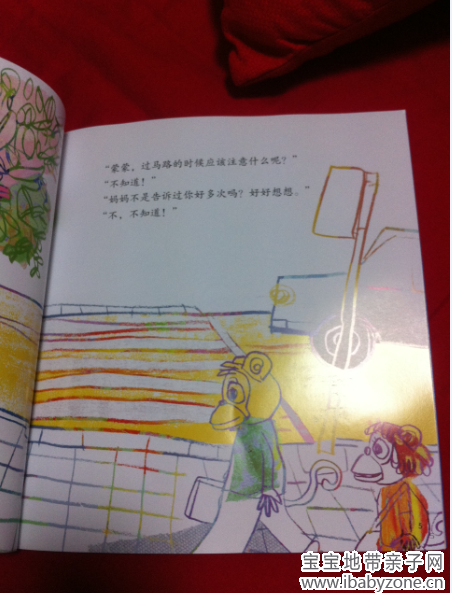 “蒙蒙，过马路的时候应该注意什么呢？”
“不知道！”
“妈妈不是告诉过你好多次吗？好好想想。”
“不，不知道！”
宝宝地带亲子网
www.ibabyzone.cn